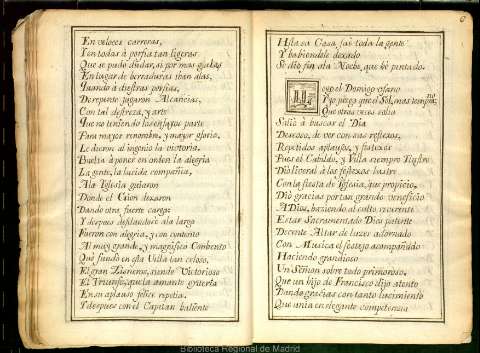 En veloces carreras,
Y en todas à porfia tan ligeras
Que se pudo dudar, si por mas galas
En lugar de herraduras iban alas,
Quando à diestras porfias,
De repente jugaron Alcancias,
Con tal destreza, y arte
Que no teniendo los enojos parte
Para mayor renombre, y mayor gloria,
Le dieron al ingenio la victoria.
Buelta à poner en orden la alegria
La gente, la lucida compañia,
A la Iglesia guiaron
Donde el Guion dexaron
Dando otra fuerte carga
Y despues desfilandose à la larga
Fueron con alegria, y con contento
Al muy grande, y magnifico Combento
Que fundo en esta Villa tan celoso,
El gran Ximenez, siendo Victorioso
El Triunfo, que la amante
En su aplauso felice repetia.
Y despues con el Capitan valiente
6
Hasta su Casa fuè toda la gente
Y habiendole dexado
Se diò fin à la Noche, que hè pintado.
el Domigo ufano
Y yo juzgo que el Sol, mas temprano
Que otras veces salio
Saliò à buscar el Dia
Deseoso, de ver con sus reflexos,
Repetidos aplausos, y festexos
Pues el Cabildo, y Villa siempre Ilustre
Diò liberal à los festexos lustre
Con la fiesta de Iglesia, que propicio,
Diò gracias por tan grande veneficio
A Dios, haziendo al culto reverente
Estar Sacramentado Dios patente
Decente Altar de luzes adornado
Con Musica el festejo acompañado
Haciendo grandioso
Un Sermon sobre todo primoroso,
Que un hijo de Francisco dijo atento
Dando gracias con tanto lucimiento
Que unia en elegante competencia
Biblioteca Regional de Madrid